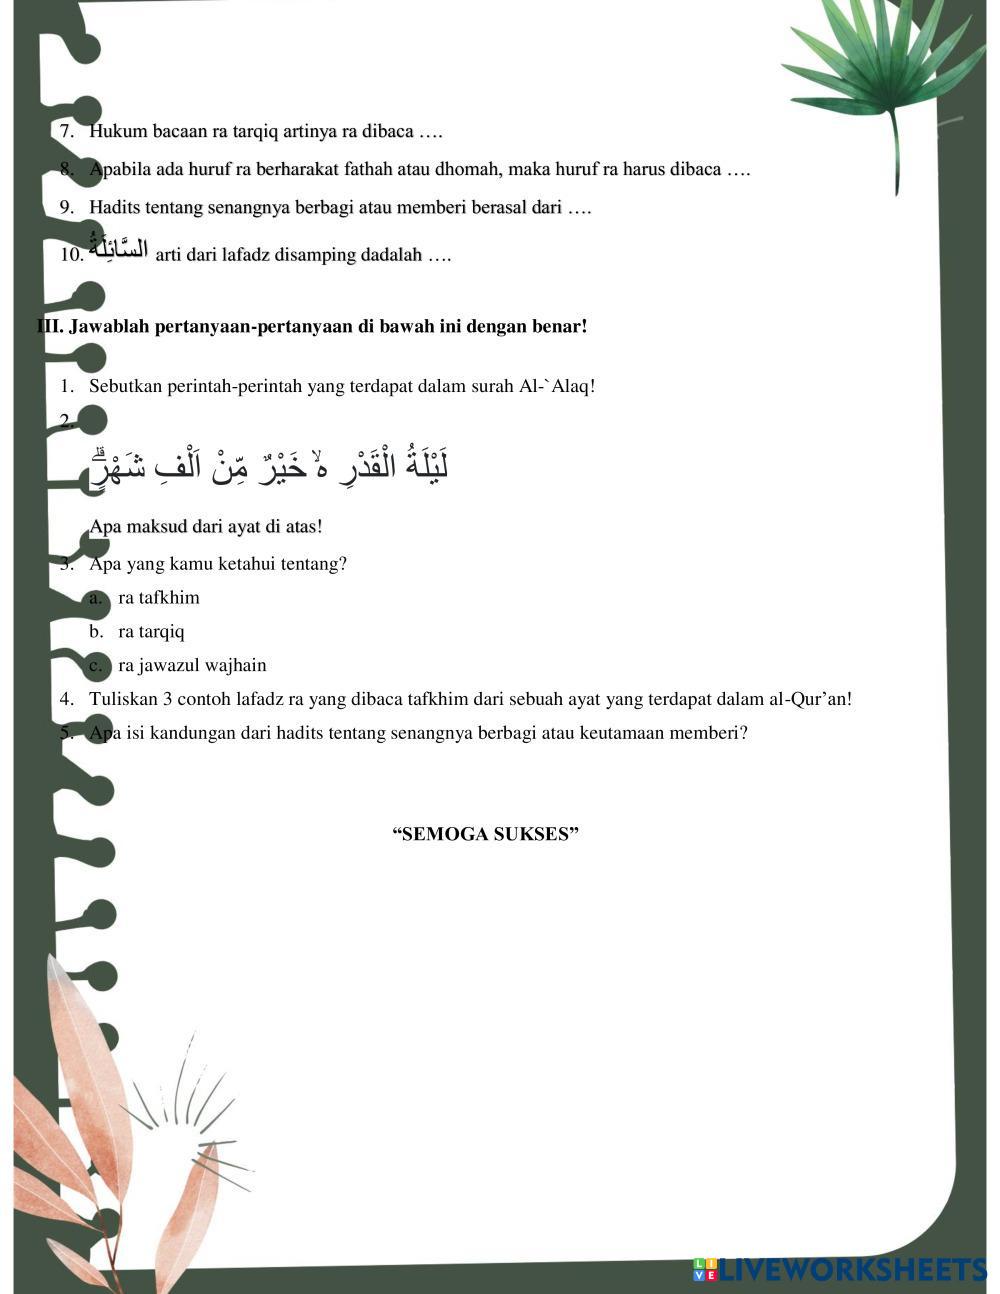 7. Hukum bacaan ra tarqiq artinya ra dibaca ….
8. Apabila ada huruf ra berharakat fathah atau dhomah, maka huruf ra harus dibaca ….
9. Hadits tentang senangnya berbagi atau memberi berasal dari ….
10. السَّائِلَةُ arti dari lafadz disamping dadalah ….
III. Jawablah pertanyaan-pertanyaan di bawah ini dengan benar!
1. Sebutkan perintah-perintah yang terdapat dalam surah Al-`Alaq!
2.
لَيْلَةُ الْقَدْرِ ەۙ خَيْرٌ مِّنْ اَلْفِ شَهْرٍۗ
Apa maksud dari ayat di atas!
3. Apa yang kamu ketahui tentang?
a. ra tafkhim
b. ra tarqiq
c. ra jawazul wajhain
4. Tuliskan 3 contoh lafadz ra yang dibaca tafkhim dari sebuah ayat yang terdapat dalam al-Qur’an!
5. Apa isi kandungan dari hadits tentang senangnya berbagi atau keutamaan memberi?
“SEMOGA SUKSES”
LIVE LIVEWORKSHEETS